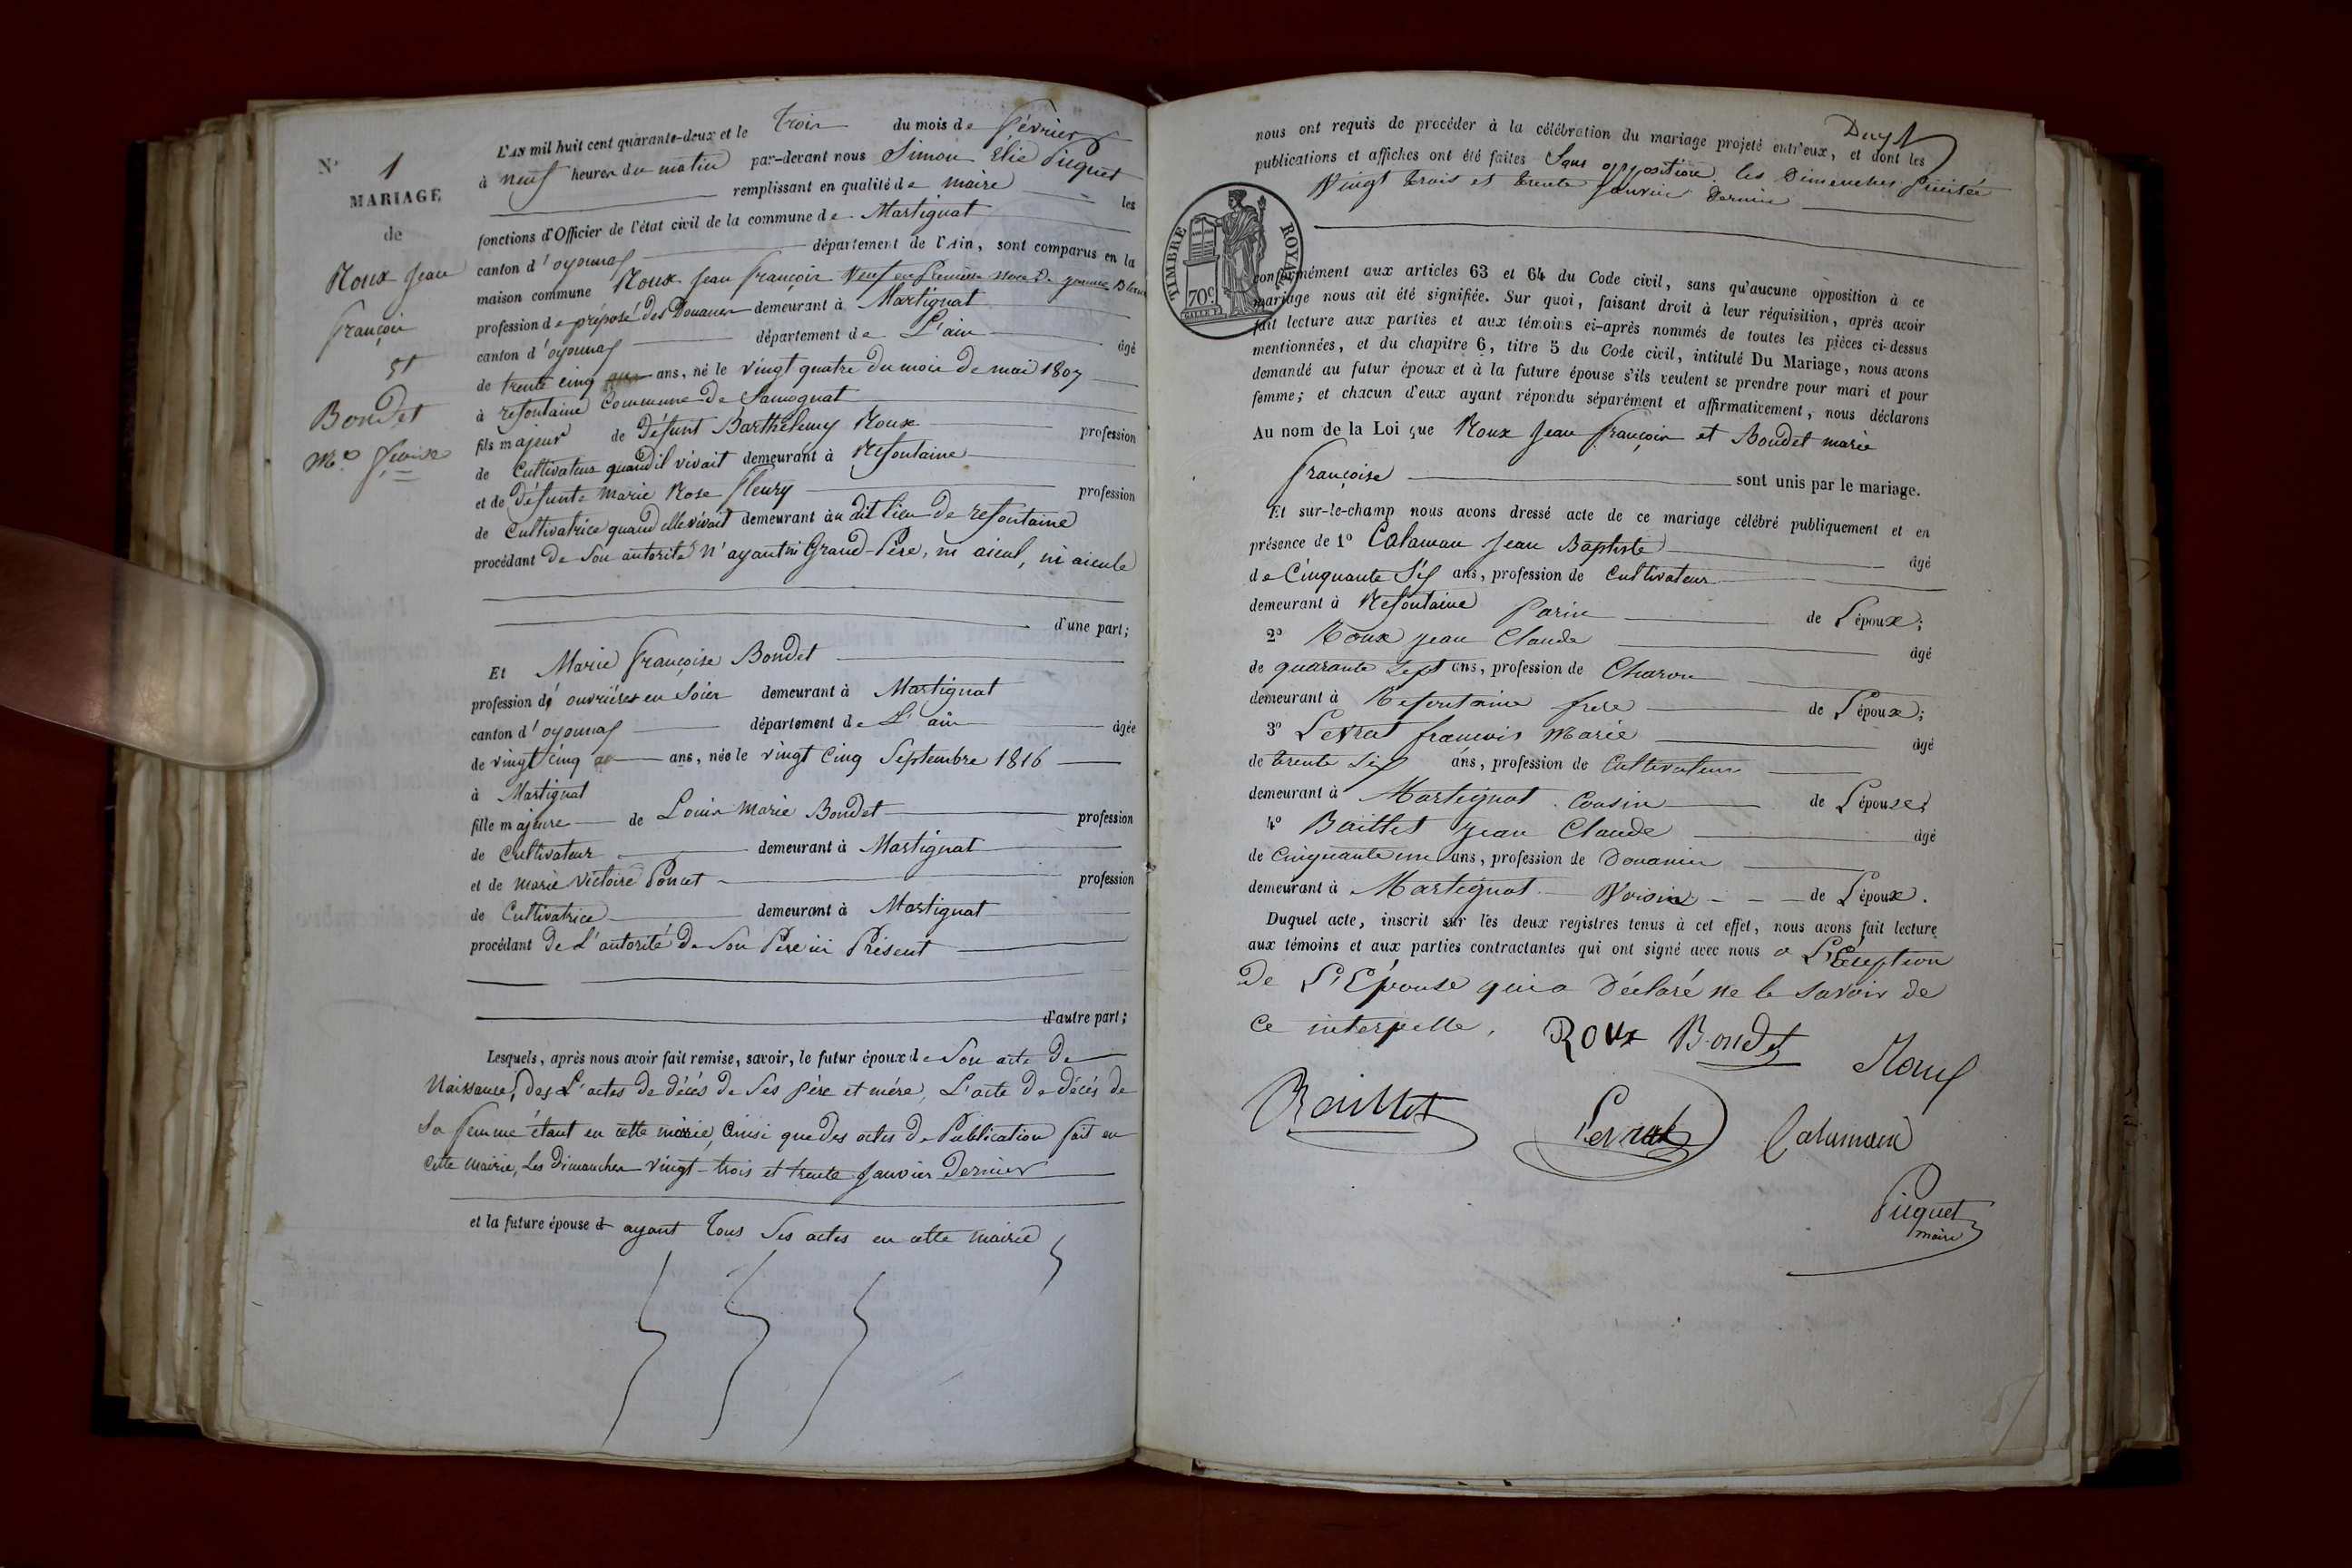 N° 1
MARIAGE
de
Roux Jean
François
et
Bondet
Mie Fçoise
L'AN mil huit cent quarante-deux et le trois du mois de février
à neuf heures du matin par-devant nous Simon Elie Piquet
remplissant en qualité de maire les
fonctions d'Officier de l'état civil de la commune de Martignat
canton d'oyonnaf département de l'Ain, sont comparus en la
maison commune Roux Jean François Veuf en première noce De
profession de préposé des Douanes demeurant à Martignat
canton d'oyonnaf département de L'ain âgé
de trente cinq ans, né le vingt quatre du mois de mai 1807
à refontaine Commune de Samognat
fils majeur de défunt Barthélemy Roux profession
de Cultivateur quand il vivait demeurant à Refontaine
et de Défunte Marie Rose Fleury profession
de Cultivatrice quand elle vivait demeurant au dit lieu de refontaine
procédant De Son autorité n'ayant ni Grand-Père, ni aieul, ni aieule
d'une part;
Et Marie Françoise Bondet
profession d'ouvrières en Soies demeurant à Martignat
canton d'oyonnaf département de L'ain âgée
de vingt cinq ans, née le vingt cinq Septembre 1816
à Martignat
fille majeure de Louis Marie Bondet profession
de Cultivateur demeurant à Martignat
et de Marie Victoire Poncet profession
de Cultivatrice demeurant à Martignat
procédant de L'autorité De Son Père ici Présent
d'autre part;
Lesquels, après nous avoir fait remise, savoir, le futur époux de Son acte De
Naissance, des L'actes de décès de Ses père et mère, L'acte De décès de
Sa femme étant en cette mairie, Ainsi que des actes de Publication fait en
cette Mairie, Les Dimanches vingt-trois et trente Janvier Dernier
et la future épouse d ayant Tous Ses actes en cette Mairie
nous ont requis de procéder à la célébration du mariage projeté entr'eux, et dont les
publications et affiches ont été faites Sans opposition les Dimanches Précités
Vingt trois et trente Janvier Dernier
TIMBRE ROYAL
70c.
conformément aux articles 63 et 64 du Code civil, sans qu'aucune opposition à ce
mariage nous ait été signifiée. Sur quoi, faisant droit à leur réquisition, après avoir
fait lecture aux parties et aux témoins ci-après nommés de toutes les pièces ci-dessus
mentionnées, et du chapitre 6, titre 5 du Code civil, intitulé Du Mariage, nous avons
demandé au futur époux et à la future épouse s'ils veulent se prendre pour mari et pour
femme; et chacun d'eux ayant répondu séparément et affirmativement, nous déclarons
Au nom de la Loi que Roux Jean François et Bondet marie
Françoise sont unis par le mariage.
Et sur-le-champ nous avons dressé acte de ce mariage célébré publiquement et en
présence de 1° Calaman Jean Baptiste âgé
de Cinquante Six ans, profession de Cultivateur
demeurant à Refontaine Parin de L'époux;
2° Roux Jean Claude âgé
de quarante Sept ans, profession de Charon
demeurant à Refontaine frere de L'époux;
3° Levrat francois Marie âgé
de trente Six ans, profession de Cultivateur
demeurant à Martignat Cousin de L'épouse;
4° Baillet Jean Claude âgé
de Cinquante un ans, profession de Douanier
demeurant à Martignat Voisin de L'époux.
Duquel acte, inscrit sur les deux registres tenus à cet effet, nous avons fait lecture
aux témoins et aux parties contractantes qui ont signé avec nous a L'Exception
De L'Epouse qui a Déclaré ne le Savoir de
Ce interpellé. Roux Bondet Roux
Baillet Levrat Calaman
Piquet
maire